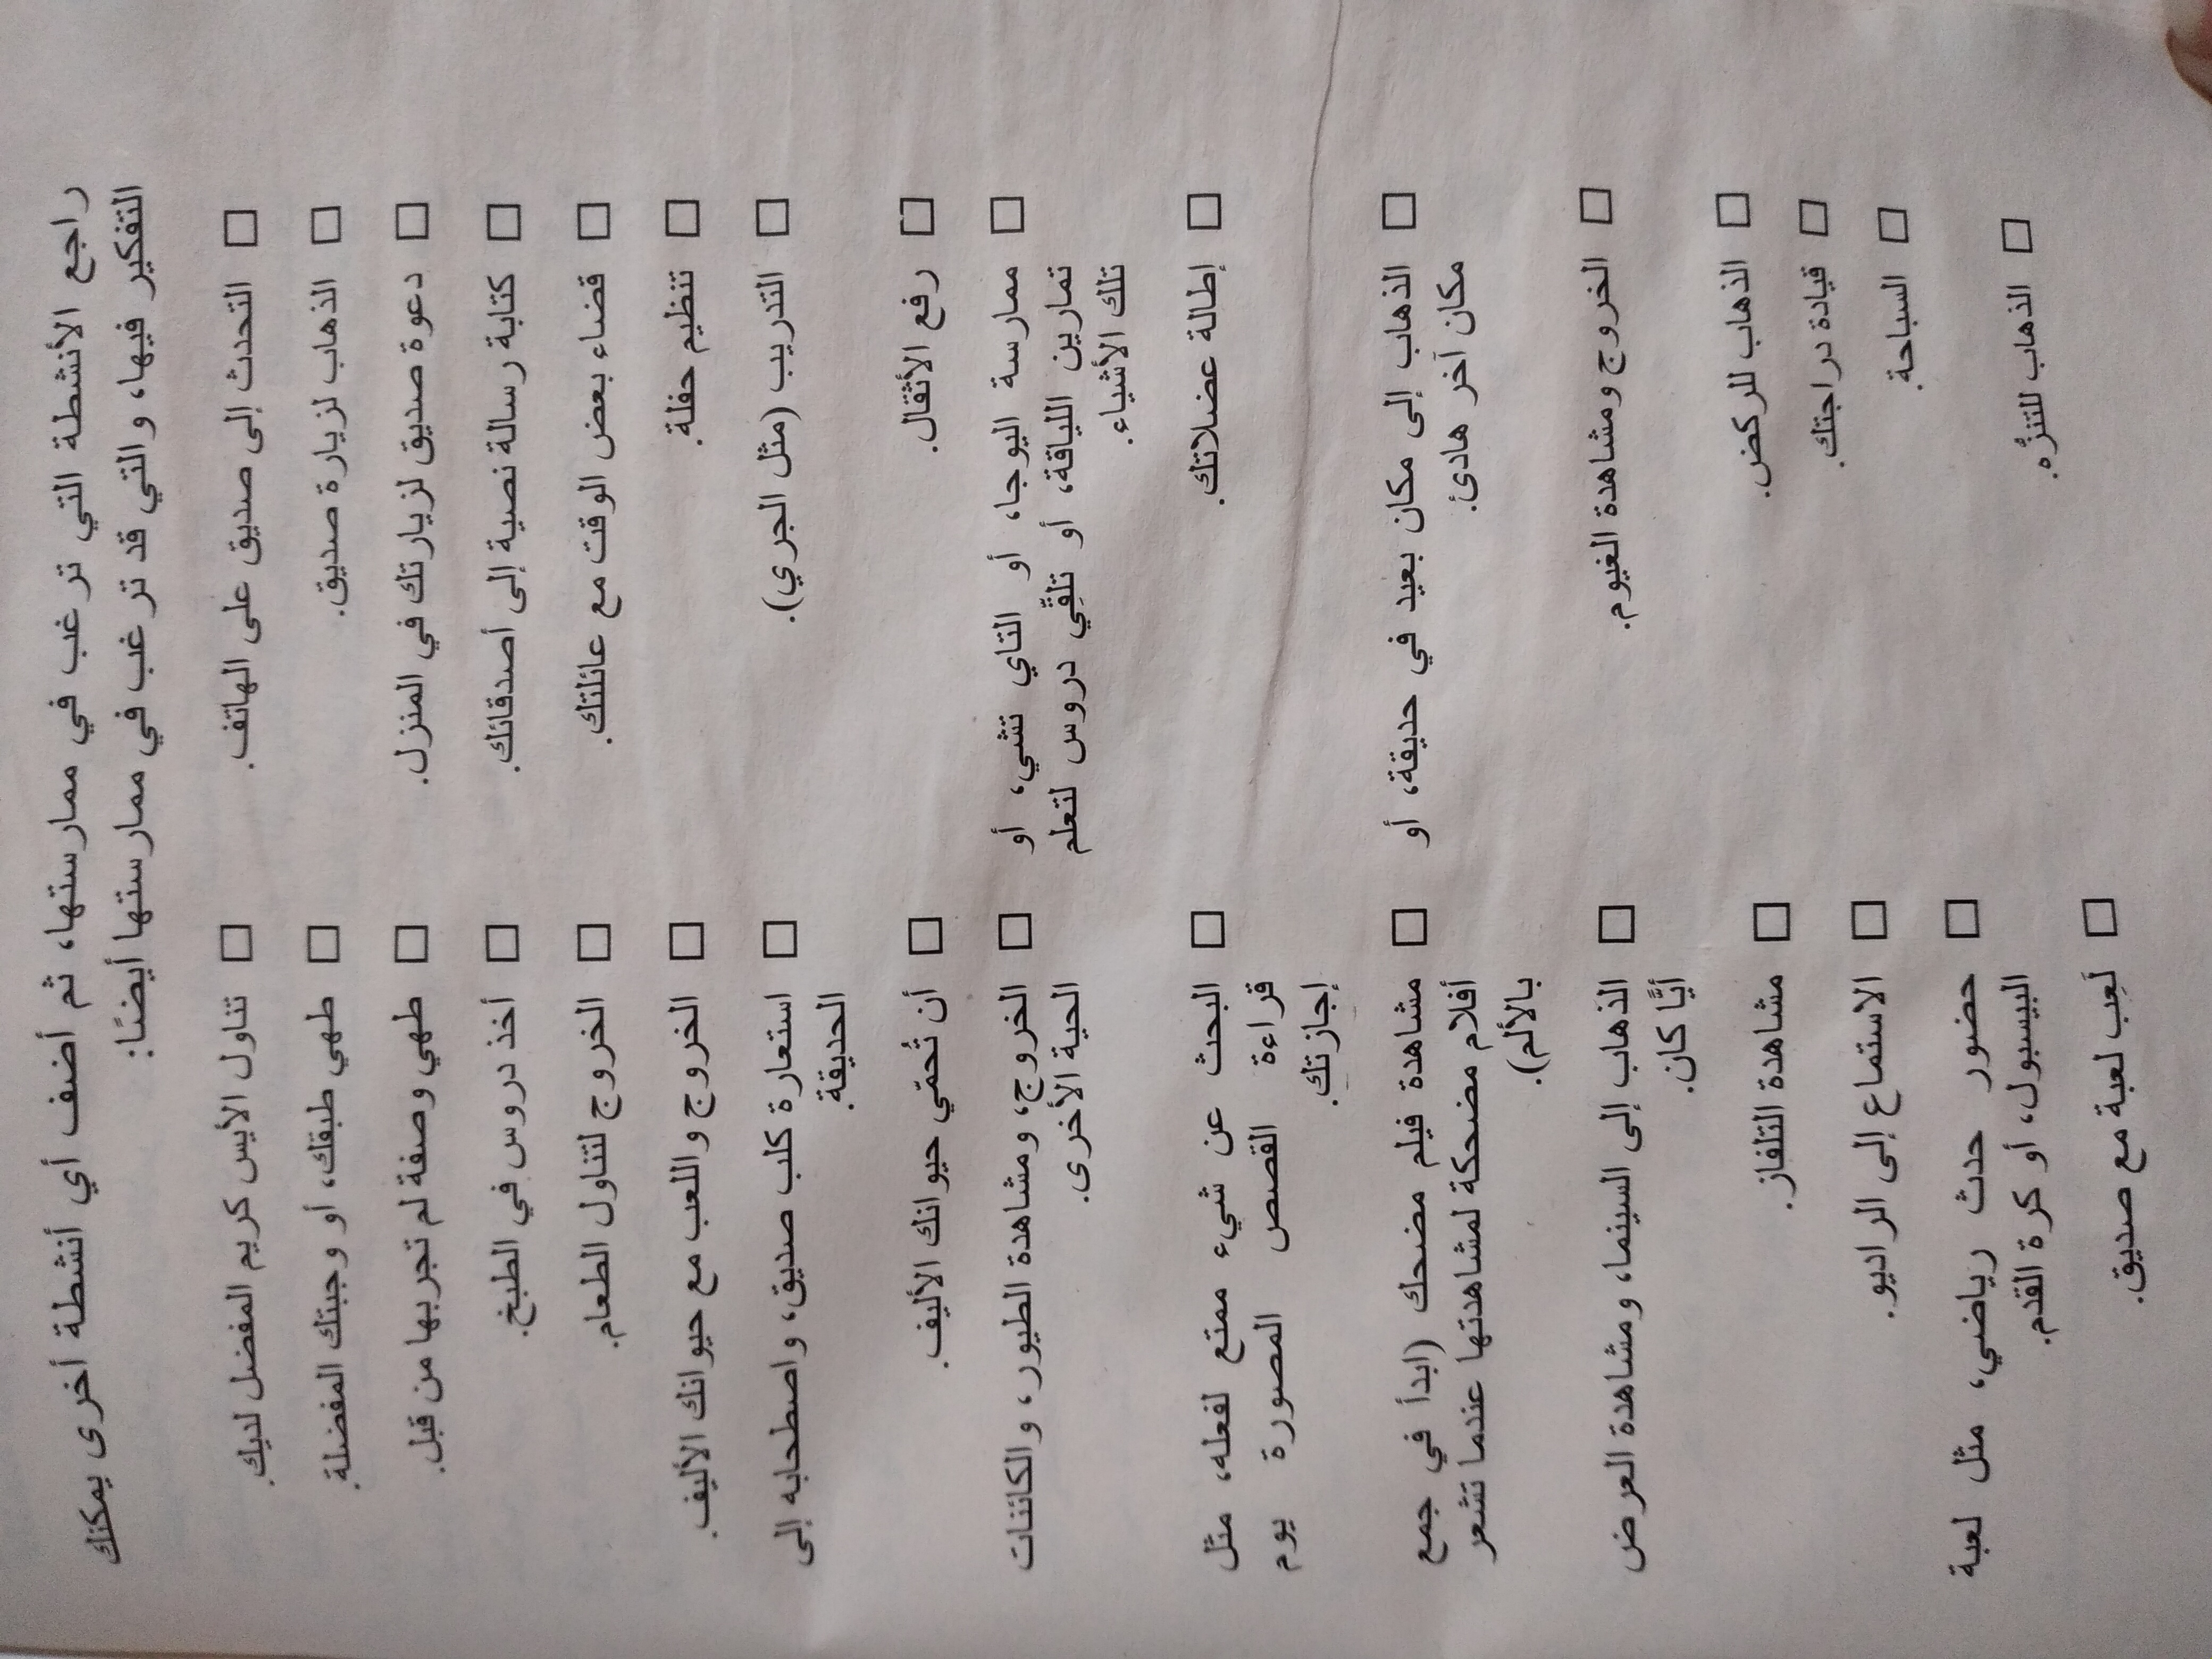 راجع الأنشطة التي ترغب في ممارستها، ثم أضف أي أنشطة أخرى يمكنك
التفكير فيها، والتي قد ترغب في ممارستها أيضًا:
التحدث إلى صديق على الهاتف.
الذهاب لزيارة صديق.
دعوة صديق لزيارتك في المنزل.
كتابة رسالة نصية إلى أصدقائك.
قضاء بعض الوقت مع عائلتك.
تنظيم حفلة.
التدريب (مثل الجري).
رفع الأثقال.
ممارسة اليوجا، أو التاي تشي، أو
تمارين اللياقة، أو تلقِّي دروس لتعلم
تلك الأشياء.
إطالة عضلاتك.
الذهاب إلى مكان بعيد في حديقة، أو
مكان آخر هادئ.
الخروج ومشاهدة الغيوم.
الذهاب للركض.
قيادة دراجتك.
السباحة.
الذهاب للتنزُّه.
تناول الآيس كريم المفضل لديك.
طهي طبقك، أو وجبتك المفضلة.
طهي وصفة لم تجربها من قبل.
أخذ دروس في الطبخ.
الخروج لتناول الطعام.
الخروج واللعب مع حيوانك الأليف.
استعارة كلب صديق، واصطحابه إلى
الحديقة.
أن تُحمّي حيوانك الأليف.
الخروج، ومشاهدة الطيور، والكائنات
الحية الأخرى.
البحث عن شيء ممتع لفعله، مثل
قراءة القصص المصورة يوم
إجازتك.
مشاهدة فيلم مضحك (ابدأ في جمع
أفلام مضحكة لمشاهدتها عندما تشعر
بالألم).
الذهاب إلى السينما، ومشاهدة العرض
أيًّا كان.
مشاهدة التلفاز.
الاستماع إلى الراديو.
حضور حدث رياضي، مثل لعبة
البيسبول، أو كرة القدم.
لَعِب لعبة مع صديق.